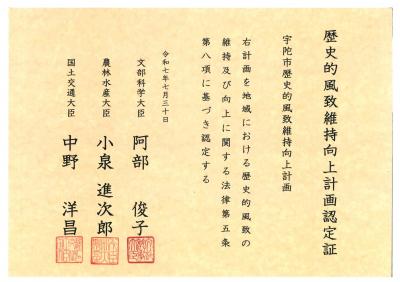 歴史的風致維持向上計画認定証
宇陀市歴史的風致維持向上計画
右計画を地域における歴史的風致の
維持及び向上に関する法律第五条
第八項に基づき認定する
令和七年七月三十日
文部科学大臣
阿部 俊子
農林水産大臣
小泉 進次郎
国土交通大臣
中野 洋昌